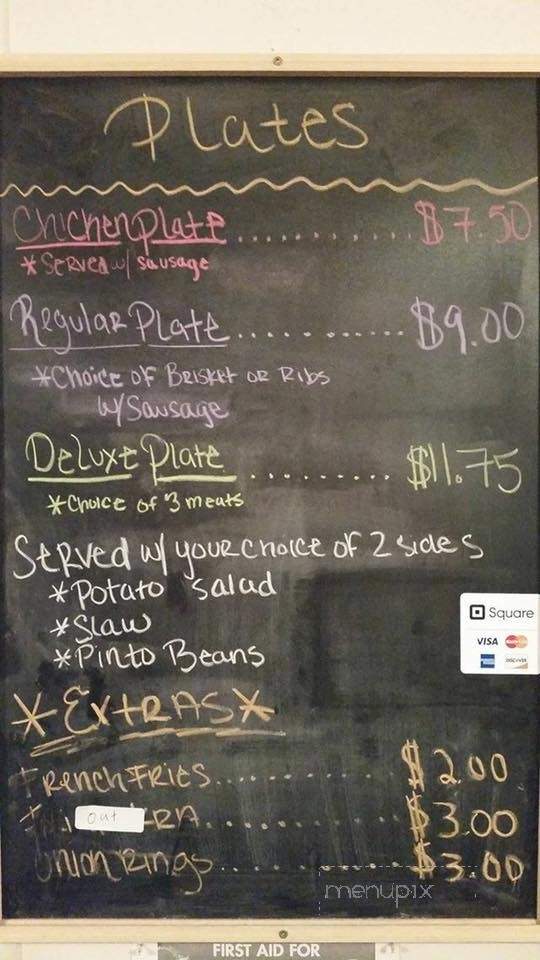 Plates
Chicken Plate ............ $7.50
*Served w/ sausage
Regular Plate ............ $9.00
*Choice of Brisket or Ribs
w/Sausage
Deluxe Plate ............ $11.75
*Choice of 3 meats
Served w/ your choice of 2 sides
*Potato Salad
*Slaw
*Pinto Beans
Square
VISA MasterCard
DISCOVER
*EXTRAS*
French Fries ............ $2.00
out ............ $3.00
Onion Rings ............ $3.00
menupix
FIRST AID FOR